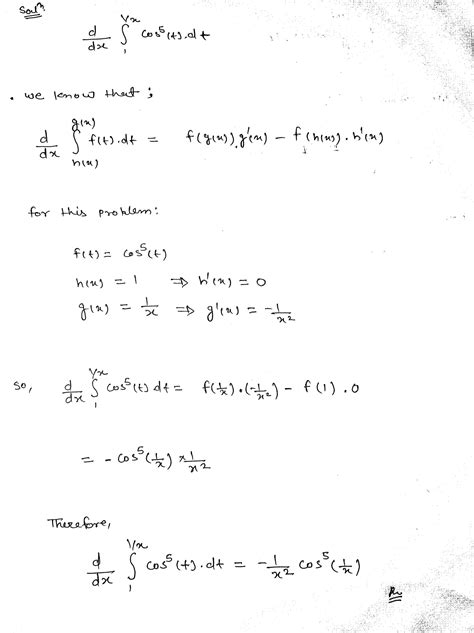 Solⁿ
d/dx ∫₁^{1/x} cos⁵(t).dt
• we know that ;
d/dx ∫_{h(x)}^{g(x)} f(t).dt = f(g(x)).g'(x) − f(h(x)).h'(x)
for this problem:
f(t) = cos⁵(t)
h(x) = 1 ⇒ h'(x) = 0
g(x) = 1/x ⇒ g'(x) = −1/x²
so, d/dx ∫₁^{1/x} cos⁵(t) dt = f(1/x).(−1/x²) − f(1).0
= − cos⁵(1/x) × 1/x²
Therefore,
d/dx ∫₁^{1/x} cos⁵(t).dt = −1/x² cos⁵(1/x)